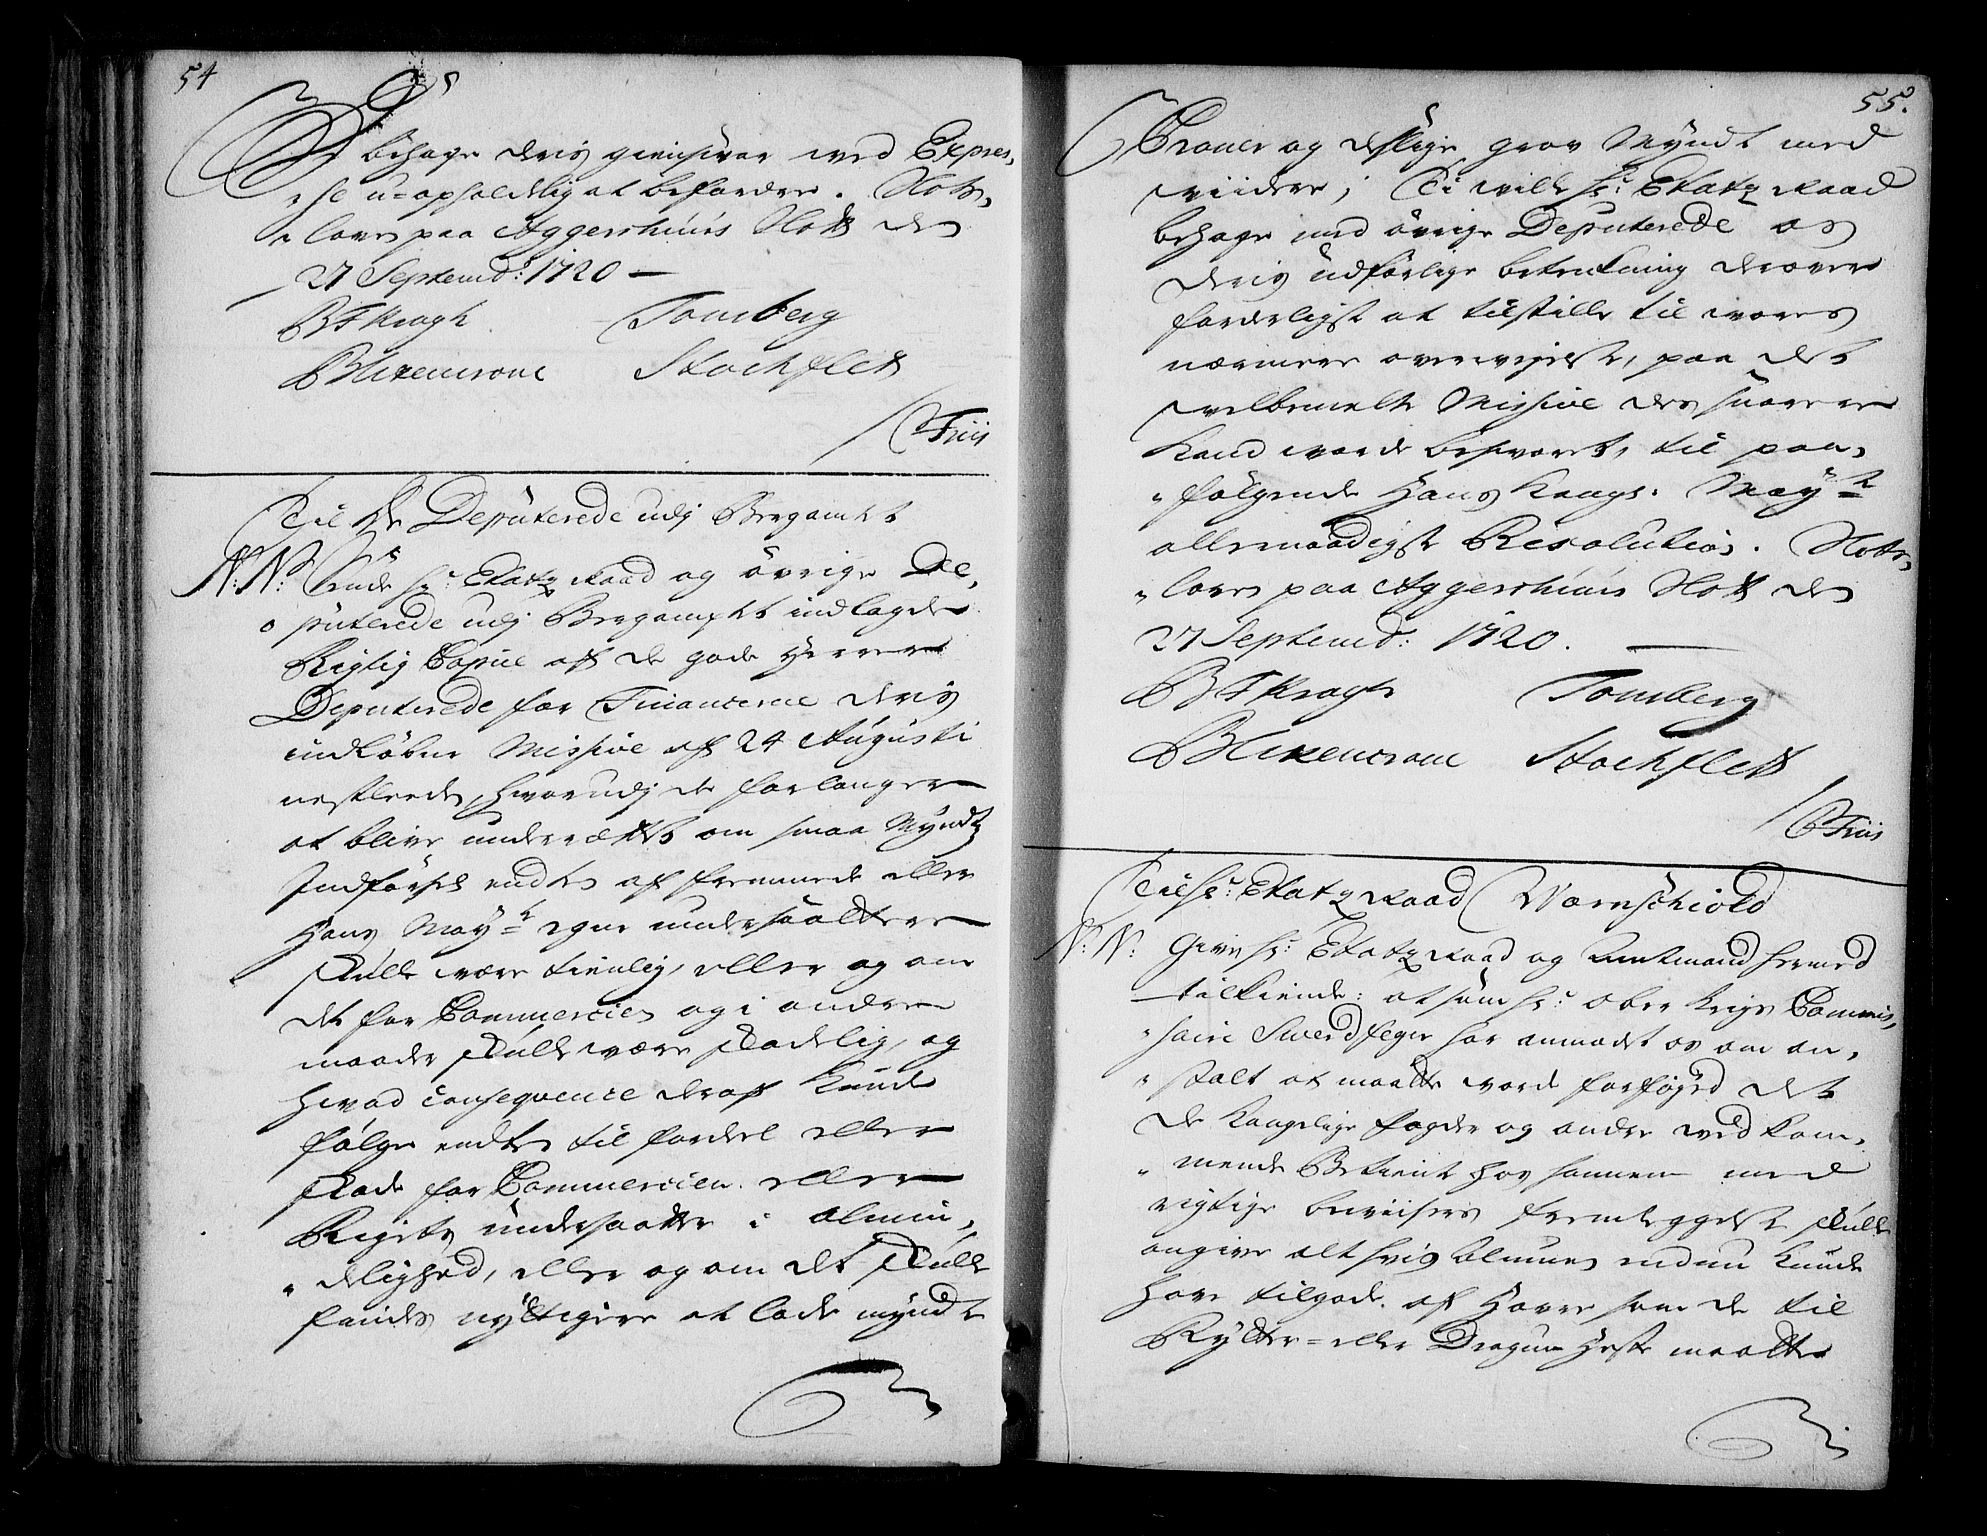 54
behage deris giensvar med Expres,
„se u=ophold̄lig at befordre. Slots,
„lov paa Aggershuus Slott den
27 Septemb: 1720 —
B F Kragh Tonsberg
B Mexencrone Stochfleth
/ Friis
Til De Deputerede udj Bergamtet
N: N: Sende hr: Etatz Raad og övrige De,
puterede udj Bergamptet indlagde
Rigtig Copie aff de gode Herrer
Deputerede for Financerne deris
indkobne Missive aff 24 Augusti
nestleeden, hvorudj de forlanger
at blive underrettet om smaa Myndtz
Indförsel enten aff fremmede eller
Hans Mayts egne undersaatter
skulle være tienlig, eller og om
det for Commercien og i andre
maader skulle være skadelig, og
hvad consequence deraf kunde
fölge enten til fordeel eller
skade for Commercien eller
Rigets undersaatter i almin,
„delighed, eller og om det skulle
findes nyttigere at lade myndte
55.
Croner og deslige grov Myndt med
viidere; Ti ville hr: Etatz Raad
behage med övrige Deputerede os
deris udförlige betenkning derover
forderligst at tilstille til vores
nærmere overvejelse, paa det
velbemelte Missive des snarere
kand vorde besvaret, til paa,
„fölgende Hans Kongl. Mayts
allernaadigste Resolution. Slots,
„lov paa Aggershuus Slott den
27 Septemb: 1720. —
B F Kragh Tonsberg
B Mexencrone Stochfleth
/ Friis
Til hr: Etatz Raad Wornschiold
N: N: Give hr: Etatz Raad og Amtmand hermed
tilkiende: at som hr: Ober Krigs Commis,
„saire Swerdfeger har anmodet os om an,
„stalt at maatte vorde forföjed det
de Kongelige fogder og andre ved kom,
„mende Betiente hos sammen med
rigtige beviisers fremleggelse skulle
angive alt hvis Almuen endnu kunde
have tilgode aff Havre som de til
Rytter= eller Dragun Heste maatte